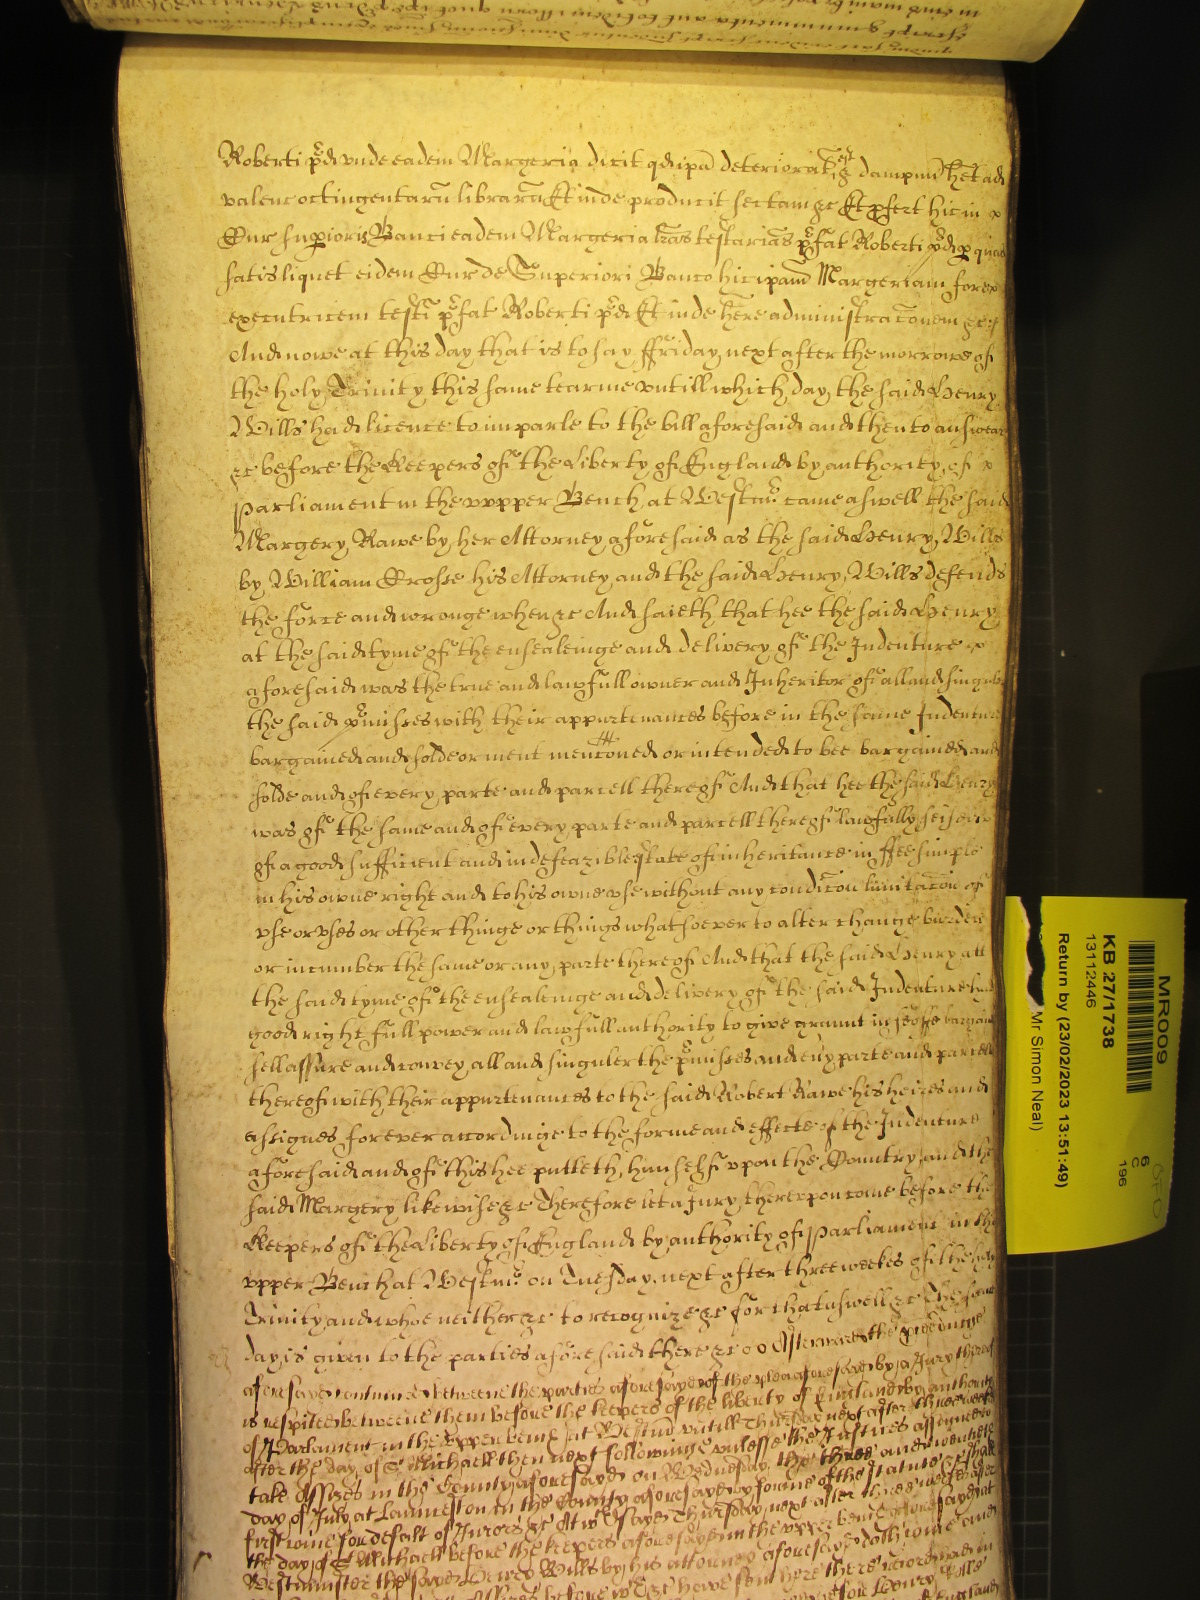 Roberti p'd unde eadem Margeria dicit qd ipa deteriorat est & dampnu het ad
valenc octingentaru libraru Et inde producit sectam &c Et pfert hic in
Cur Supioris Banci eadem Margeria lras testarias p'fat Roberti p'd p quas
satis liquet eidem Cur de Superiori Banco hic ipam Margeriam fore
executricem testi p'fat Roberti p'd Et inde here administraconem &c
And nowe at this day that is to say ffriday next after the morrowe of
the holy Trinity this same tearme untill which day the said Henry
Wills had licence to imparle to the bill aforesaid and then to answear
&c before the Keepers of the Liberty of England by authority of
Parliament in the vpper Bench at Westmr came aswell the said
Margery Rawe by her Attorney aforesaid as the said Henry Wills
by William Crosse his Attorney and the said Henry Wills defends
the force and wronge when &c And saieth that hee the said Henry
at the said tyme of the ensealeinge and delivery of the Indenture
aforesaid was the true and lawfull owner and Inheritor of all and singuler
the said p'misses with their appurtenances before in the same Indenture
bargained and solde or ment menconed or intended to bee bargained and
solde and of every parte and parcell thereof And that hee the said Henry
was of the same and of every parte and parcell thereof lawfully seised
of a good sufficient and indefeazible estate of inheritance in ffee simple
in his owne right and to his owne vse without any condicon limitacon of
vse or vses or other thinge or things whatsoever to alter change burden
or incumber the same or any parte thereof And that the said Henry att
the said tyme of the ensealeinge and delivery of the said Indenture had
good right full power and lawfull authority to give graunt infeoffe bargaine
sell assure and convey all and singuler the p'misses and eu'y parte and parcell
thereof with their appurtenances to the said Robert Rawe his heires and
assignes for ever accordinge to the forme and effecte of the Indenture
aforesaid and of this hee putteth himself vpon the Country and the
said Margery likewise &c Therefore let a Jury therevpon come before the
Keepers of the Liberty of England by authority of Parliament in the
vpper Bench at Westmr on Tuesday next after three weekes of the holy
Trinity and whoe neither &c to recognize &c for that aswell &c The same
day is given to the parties aforesaid there &c Afterwards the
aforesayed betweene the parties aforesayed of the plea aforesayed by a Jury thereof
is respited betweene them before the keepers of the liberty of England by authority
of Parliament in the Vpper bench at Westm untill Thursday next after three weekes
after the day of St Michaell then next followinge unlesse the Justices assigned to
take Assizes in the County aforesayed on Wednesday the three and twentieth
day of July at Launceston in the County aforesayed by forme of the statute &c shall
first come for default of Jurors &c At wch sayed Thursday next after three weekes after
the day of St Michaell before the keepers aforesayed in the upper bench aforesayed at
Westminster the sayed Henry Wills by his attorney aforesayed doth come and
before
England
MR009
KB 27/1738
13112446
Return by (23/02/2023 13:51:49)
Mr Simon Neal)
6
C
196